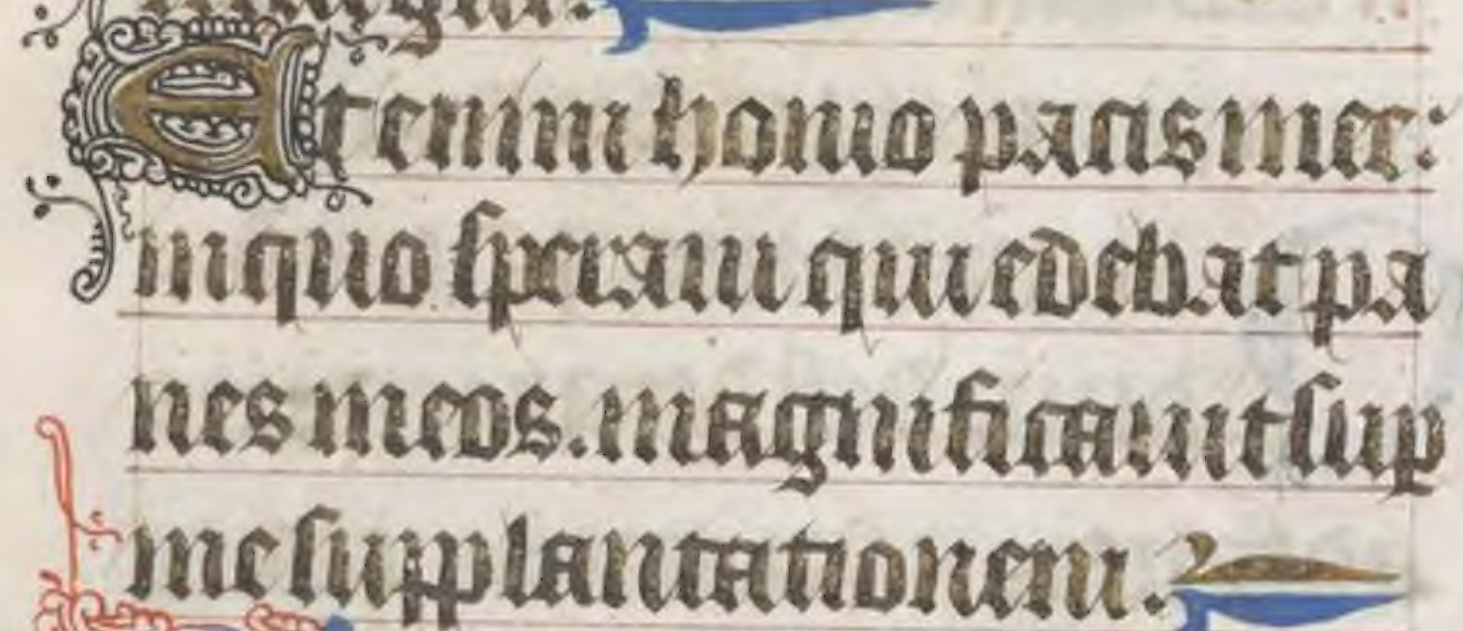 Etenim homo pacis mee:
in quo speraui qui edebat pa
nes meos. magnificauit sup
me supplantationem.